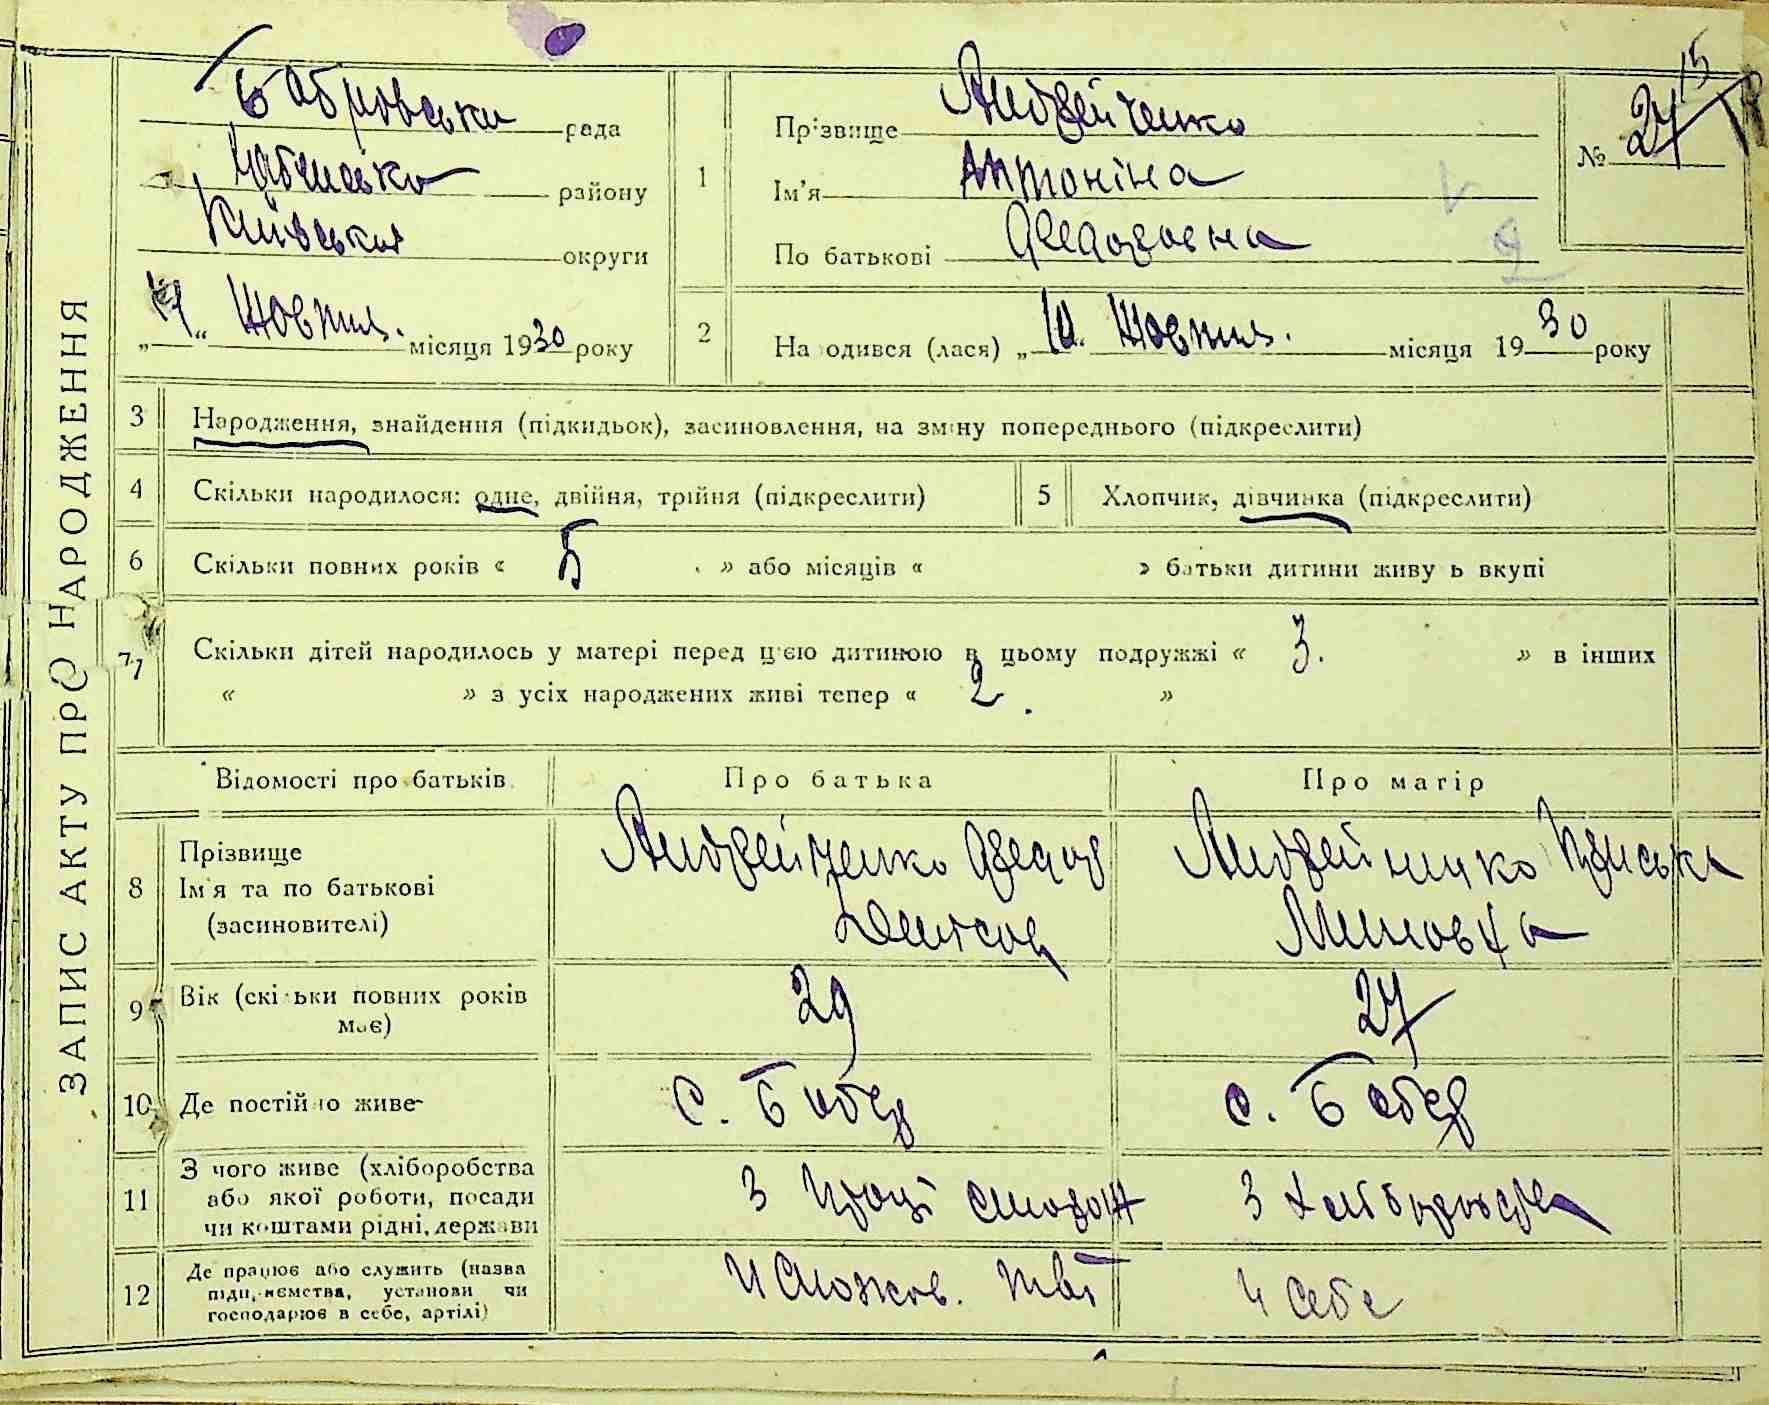 ЗАПИС АКТУ ПРО НАРОДЖЕННЯ
Бобровська рада
району
Київська округи
„14“ Жовтня. місяця 1930 року
1
Прізвище Андрейченко
Ім'я Антоніна
По батькові Федоровна
№ 27
15
2
Народився (лася) „10“ Жовтня. місяця 1930 року
3 Народження, знайдення (підкидьок), засиновлення, на зміну попереднього (підкреслити)
4 Скільки народилося: одне, двійня, трійня (підкреслити)
5 Хлопчик, дівчинка (підкреслити)
6 Скільки повних років « 5 » або місяців « » батьки дитини живуть вкупі
7 Скільки дітей народилось у матері перед цією дитиною в цьому подружжі « 3. » в інших
« » з усіх народжених живі тепер « 2. »
Відомості про батьків Про батька Про матір
8 Прізвище
Ім'я та по батькові
(засиновителі)
Андрейченко Федор
Андрейченко
9 Вік (скільки повних років
має)
29
27
10 Де постійно живе
с. Бобер
с. Бобер
11 З чого живе (хліборобства
або якої роботи, посади
чи коштами рідні, держави
З праці
З хліборобства
12 Де працює або служить (назва
підприємства, установи чи
господарює в себе, артілі)
У себе